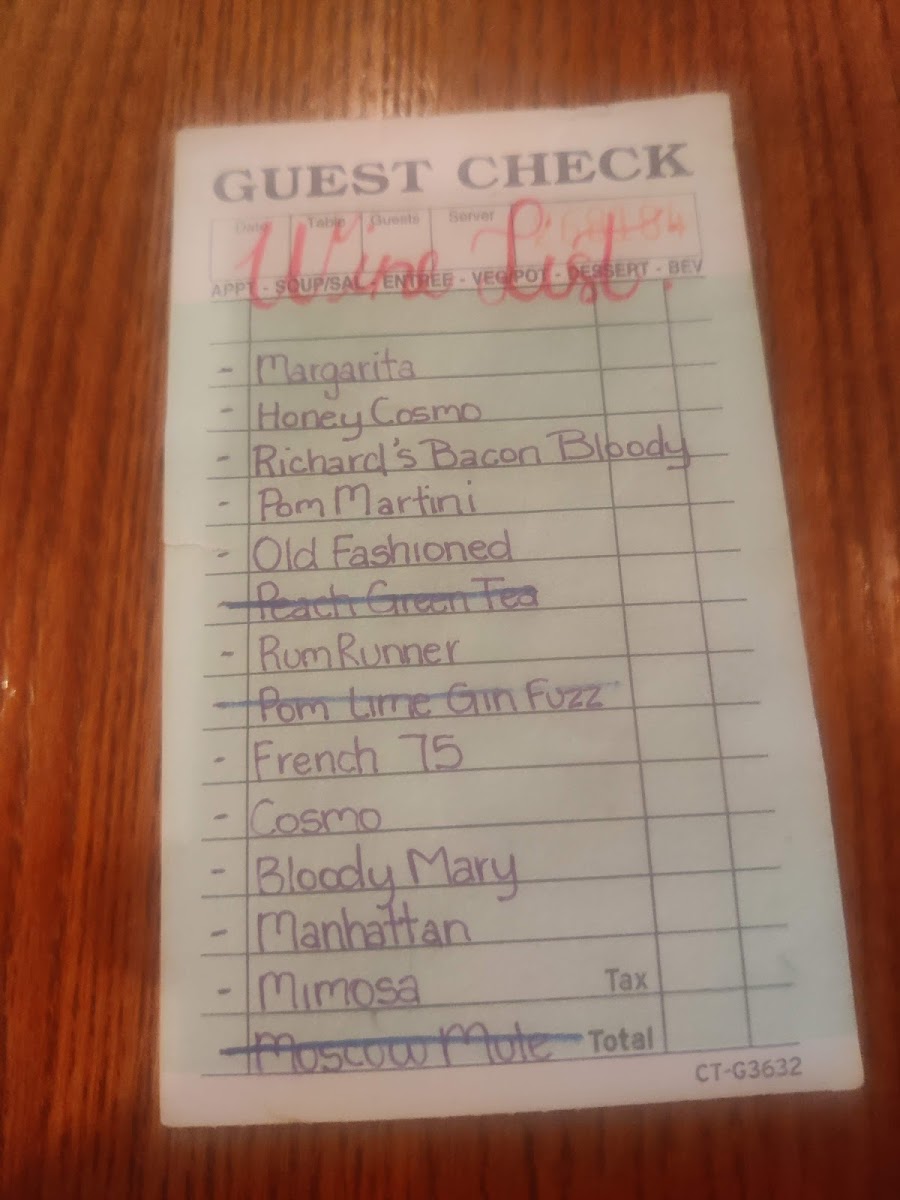 GUEST CHECK
Date Table Guests Server
Wine List.
APPT - SOUP/SAL - ENTREE - VEG/POT - DESSERT - BEV
- Margarita
- Honey Cosmo
- Richard's Bacon Bloody
- Pom Martini
- Old Fashioned
- Peach Green Tea
- Rum Runner
- Pom Lime Gin Fuzz
- French 75
- Cosmo
- Bloody Mary
- Manhattan
- Mimosa Tax
- Moscow Mule Total
CT-G3632